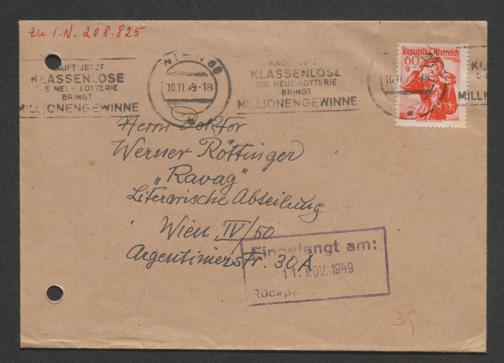 Zu I.N. 208.825
KAUFT JETZT
KLASSENLOSE
LOTTERIE
BRINGT
MILLIONENGEWINNE
WIEN
10.11.49-18
KLASSENLOSE
DIE NEUE LOTTERIE
BRINGT
MILLIONENGEWINNE
Republik Österreich
60
g
Herrn Doktor
Werner Röttinger
„Ravag"
Literarische Abteilung
Wien IV/50
Argentinierstr. 30A
Eingelangt am:
11. NOV. 1949
39